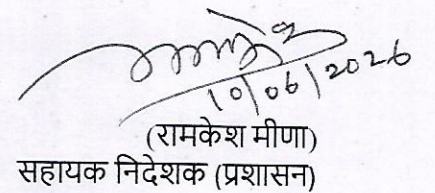 10/06/2026
(रामकेश मीणा)
सहायक निदेशक (प्रशासन)